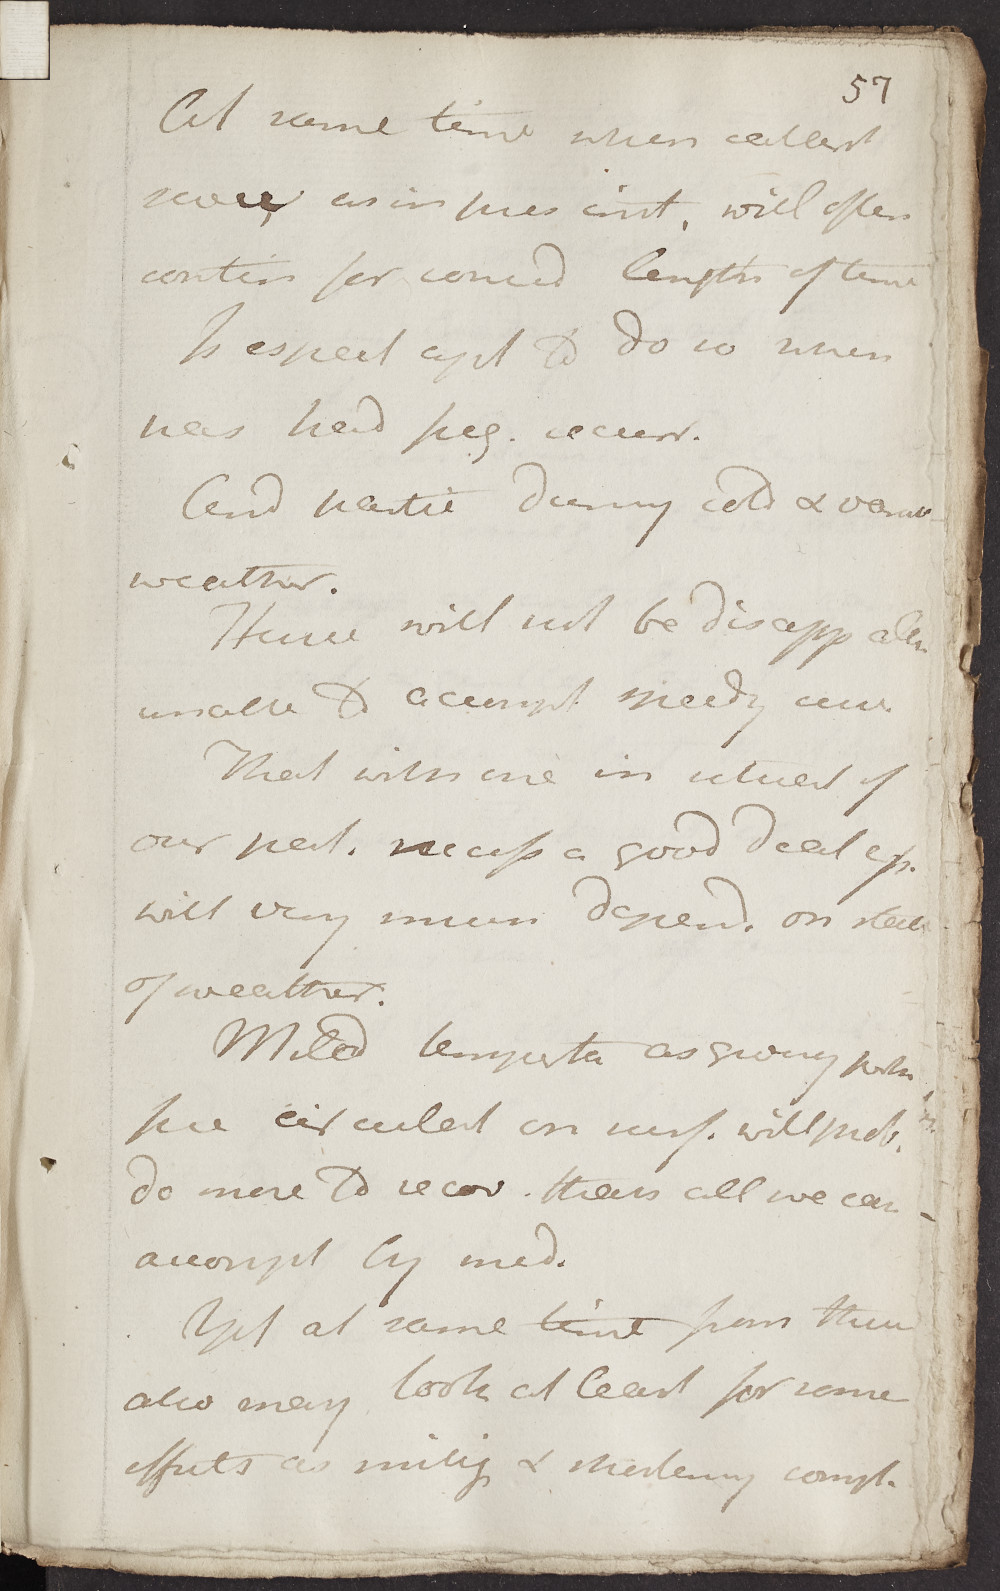 57
At same time when catarrh
sever as in pres inst, will often
contin for consid length of time
Is especl apt to do so when
has head freq. occurr.
And partic during cold & variab
weather.
Hence will not be disapp altho
unable to accompl speedy cure
That with one in situat of
our pat. necess a good deal
will very much depend. on state
of weather.
Mild tempertr as giving
free circulat on surf. will prob.
do more to recov. than all we can
accompl by med.
Yet at same time from them
also may look at least for some
effects as mitig & shortening compl.